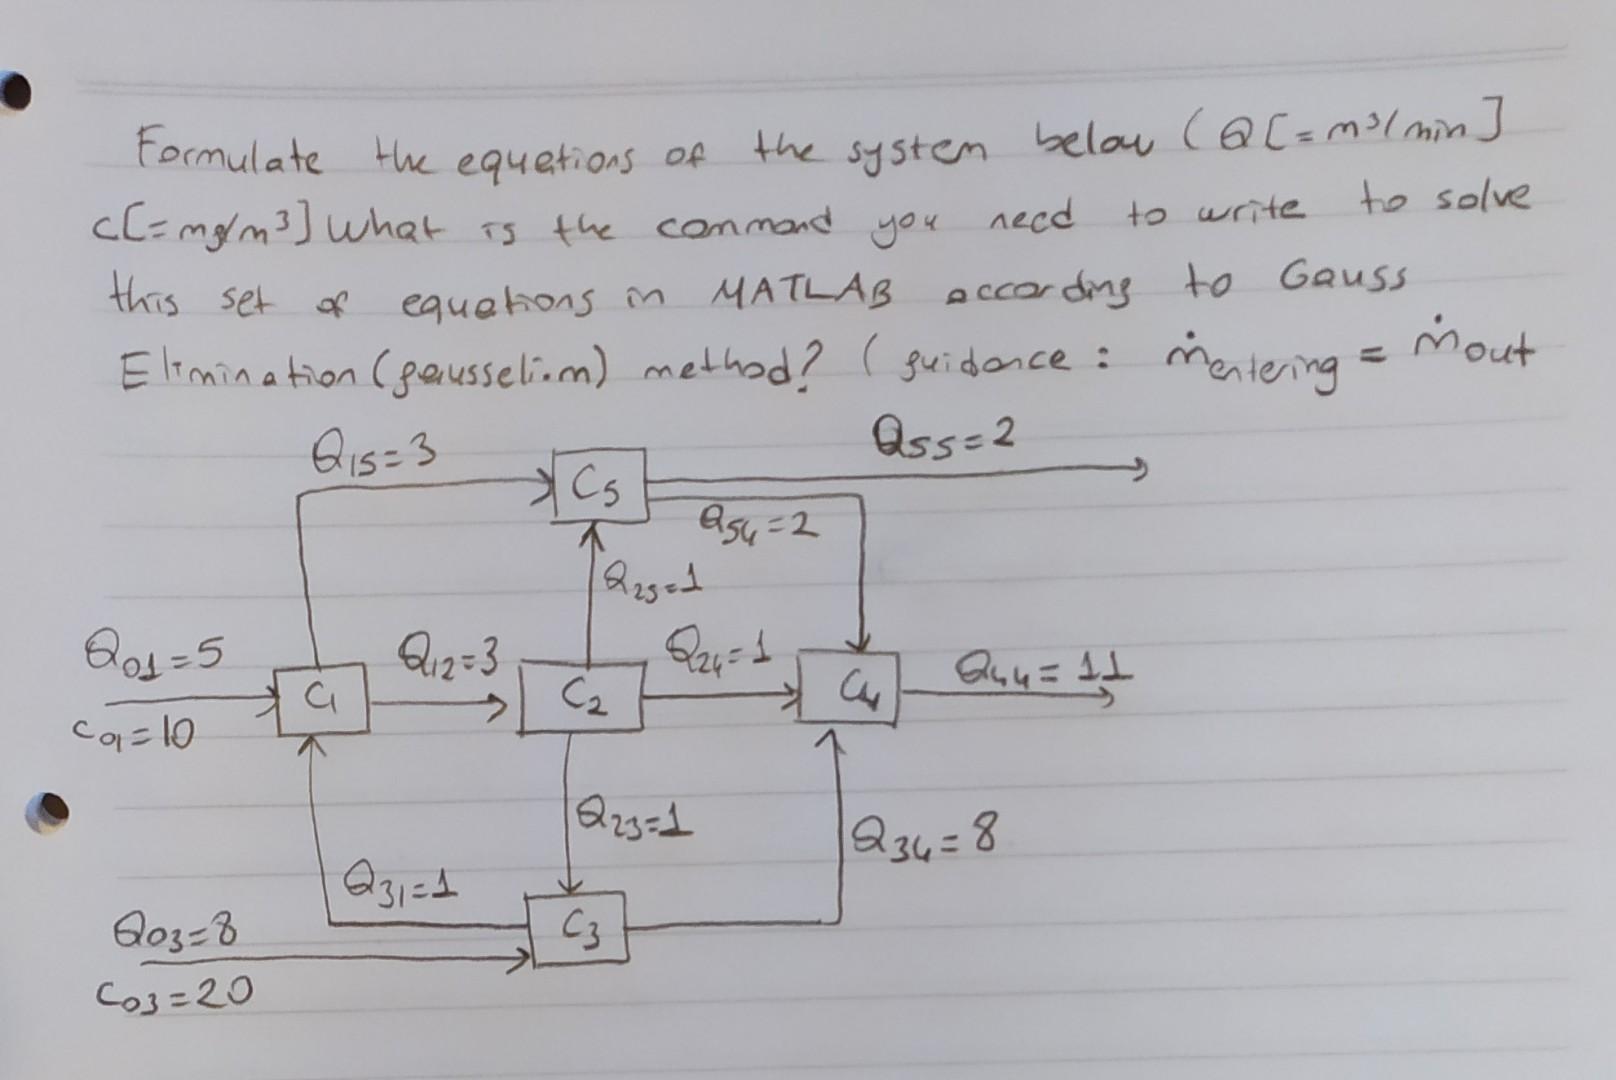 Formulate the equations of the system below (Q[=m³/min]
c[=mg/m³] What is the command you need to write to solve
this set of equations in MATLAB according to Gauss
Elimination (gausselim) method? (guidance : ṁentering = ṁout
Q15=3
Q55=2
C5
Q54=2
Q25=1
Q01=5
Q12=3
Q24=1
Q44=11
C1
C2
C4
C01=10
Q23=1
Q34=8
Q31=1
Q03=8
C3
C03=20